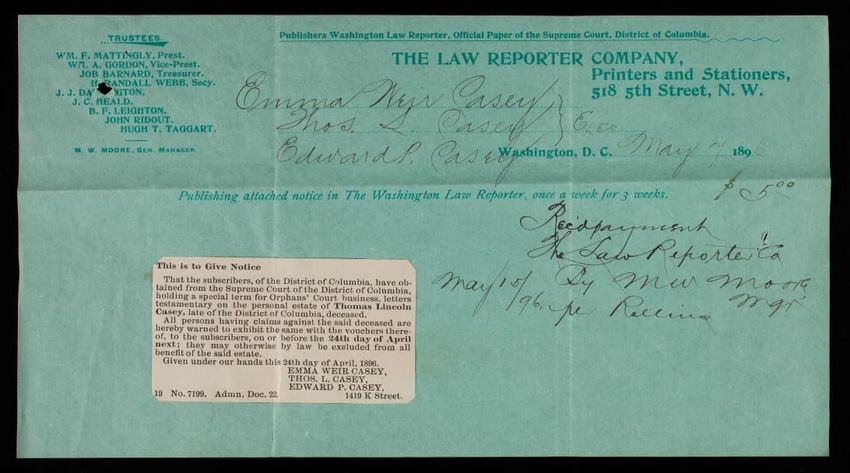 TRUSTEES.
WM. F. MATTINGLY, Prest.
WM. A. GORDON, Vice-Prest.
JOB BARNARD, Treasurer.
H. RANDALL WEBB, Secy.
J. J. DA GTON.
J. C. HEALD.
B. F. LEIGHTON.
JOHN RIDOUT.
HUGH T. TAGGART.
M. W. MOORE, GEN. MANAGER.
Publishers Washington Law Reporter, Official Paper of the Supreme Court, District of Columbia.
THE LAW REPORTER COMPANY,
Printers and Stationers,
518 5th Street, N. W.
Emma Weir Casey
Thos. L. Casey
Edward P. Casey
Washington, D. C. May 7 1896
$5.00
Publishing attached notice in The Washington Law Reporter, once a week for 3 weeks.
Rec'd payment
The Law Reporter Co
By M W Moore
Mgr
May 15/96 per
This is to Give Notice
That the subscribers, of the District of Columbia, have ob-
tained from the Supreme Court of the District of Columbia,
holding a special term for Orphans' Court business, letters
testamentary on the personal estate of Thomas Lincoln
Casey, late of the District of Columbia, deceased.
All persons having claims against the said deceased are
hereby warned to exhibit the same with the vouchers there-
of, to the subscribers, on or before the 24th day of April
next; they may otherwise by law be excluded from all
benefit of the said estate.
Given under our hands this 24th day of April, 1896.
EMMA WEIR CASEY,
THOS. L. CASEY,
EDWARD P. CASEY,
19 No. 7199. Admn. Doc. 22. 1419 K Street.